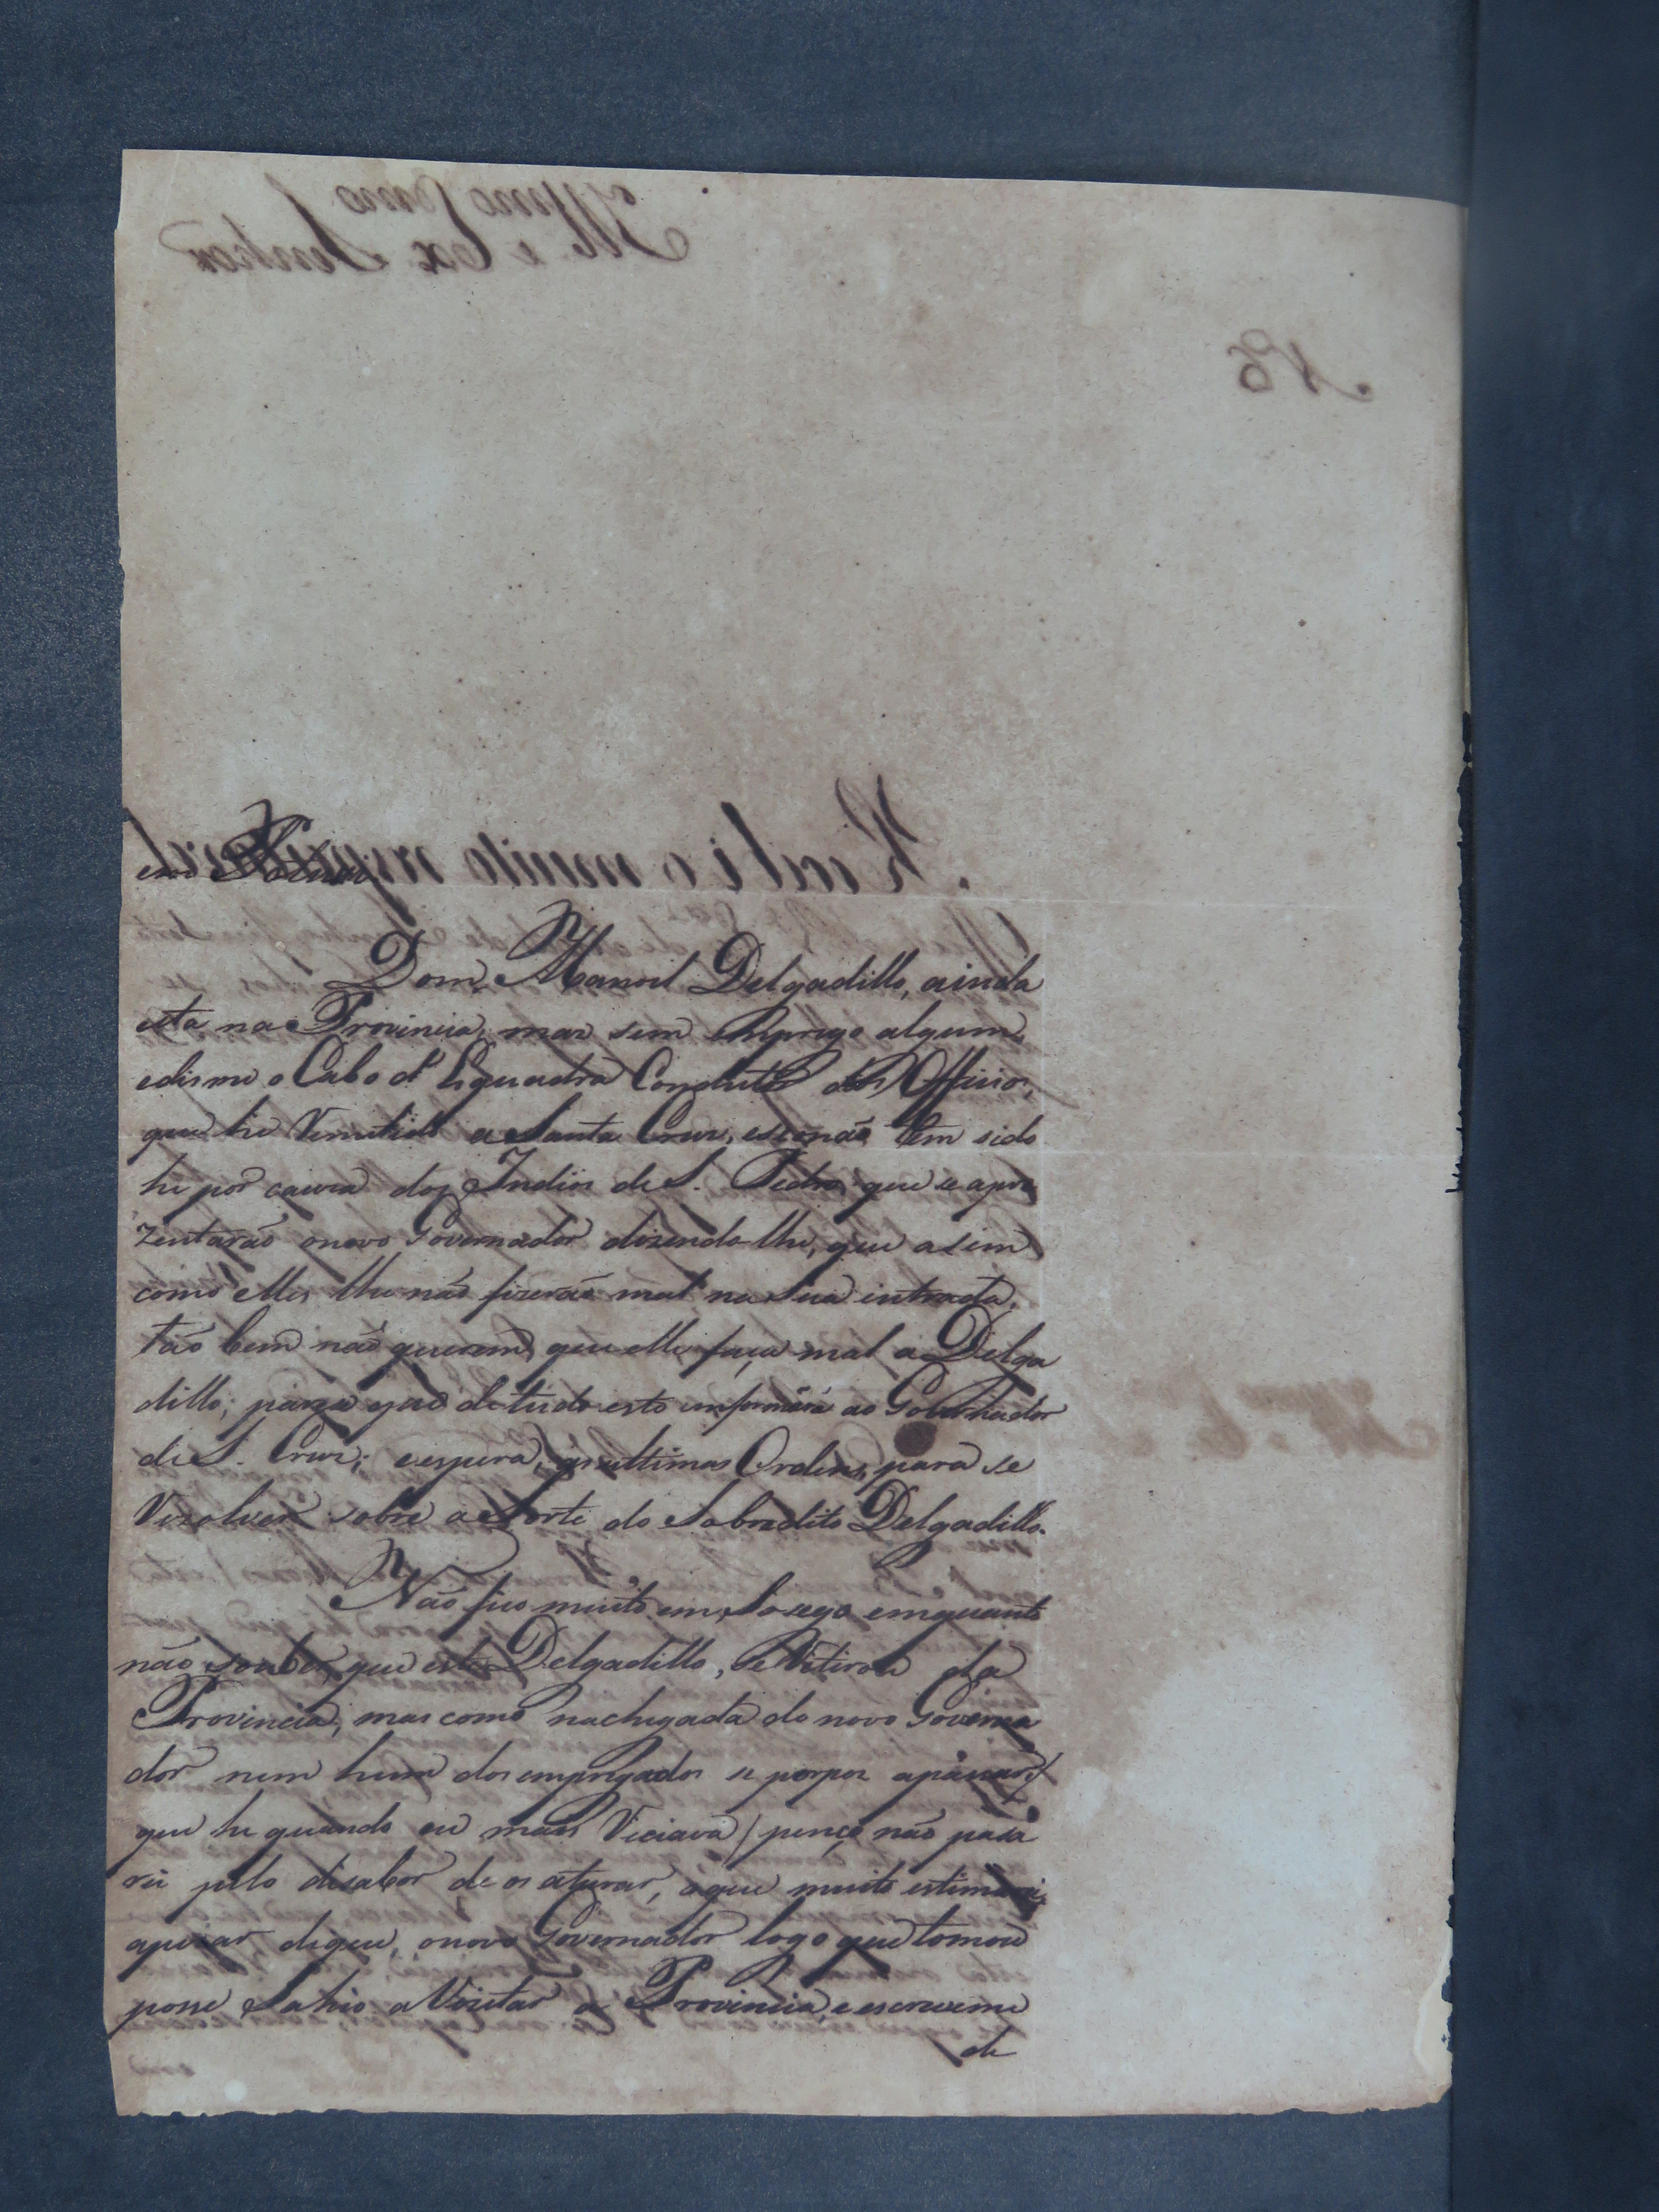 em
Dom Manoel Delgadillo, ainda
esta na Provincia, mas sem emprego algum,
edisme o Cabo d'Esquadra Conductor dos Officios,
que he Remetido a Santa Cruz, esenão tem sido
he por cauza dos Indios de S. Pedro que se apre
zentarão onovo Governador dizendo lhe, que asim
como elles lhe não fizerão mal na sua entrada,
tão bem não querem que elle faça mal a Delga
dillo; parese que de tudo esto informára ao Governador
de S. Cruz; eespera, as ultimas Ordens, para se
Rezolver sobre a Sorte do Sobredito Delgadillo.
Não fico muito em Socego emquanto
não souber, que este Delgadillo, se Retirou da
Provincia, mas como nachegada do novo Governa
dor nem hum dos empregados se porpos apasar,
que he quando eu mais Reciava / penço não pasa
rei pelo disabor de os aturar, oque muito estimarei,
apezar, deque, onovo Governador logo que tomou
posse Sahio a Vizitar a Provincia, eescreveme
de